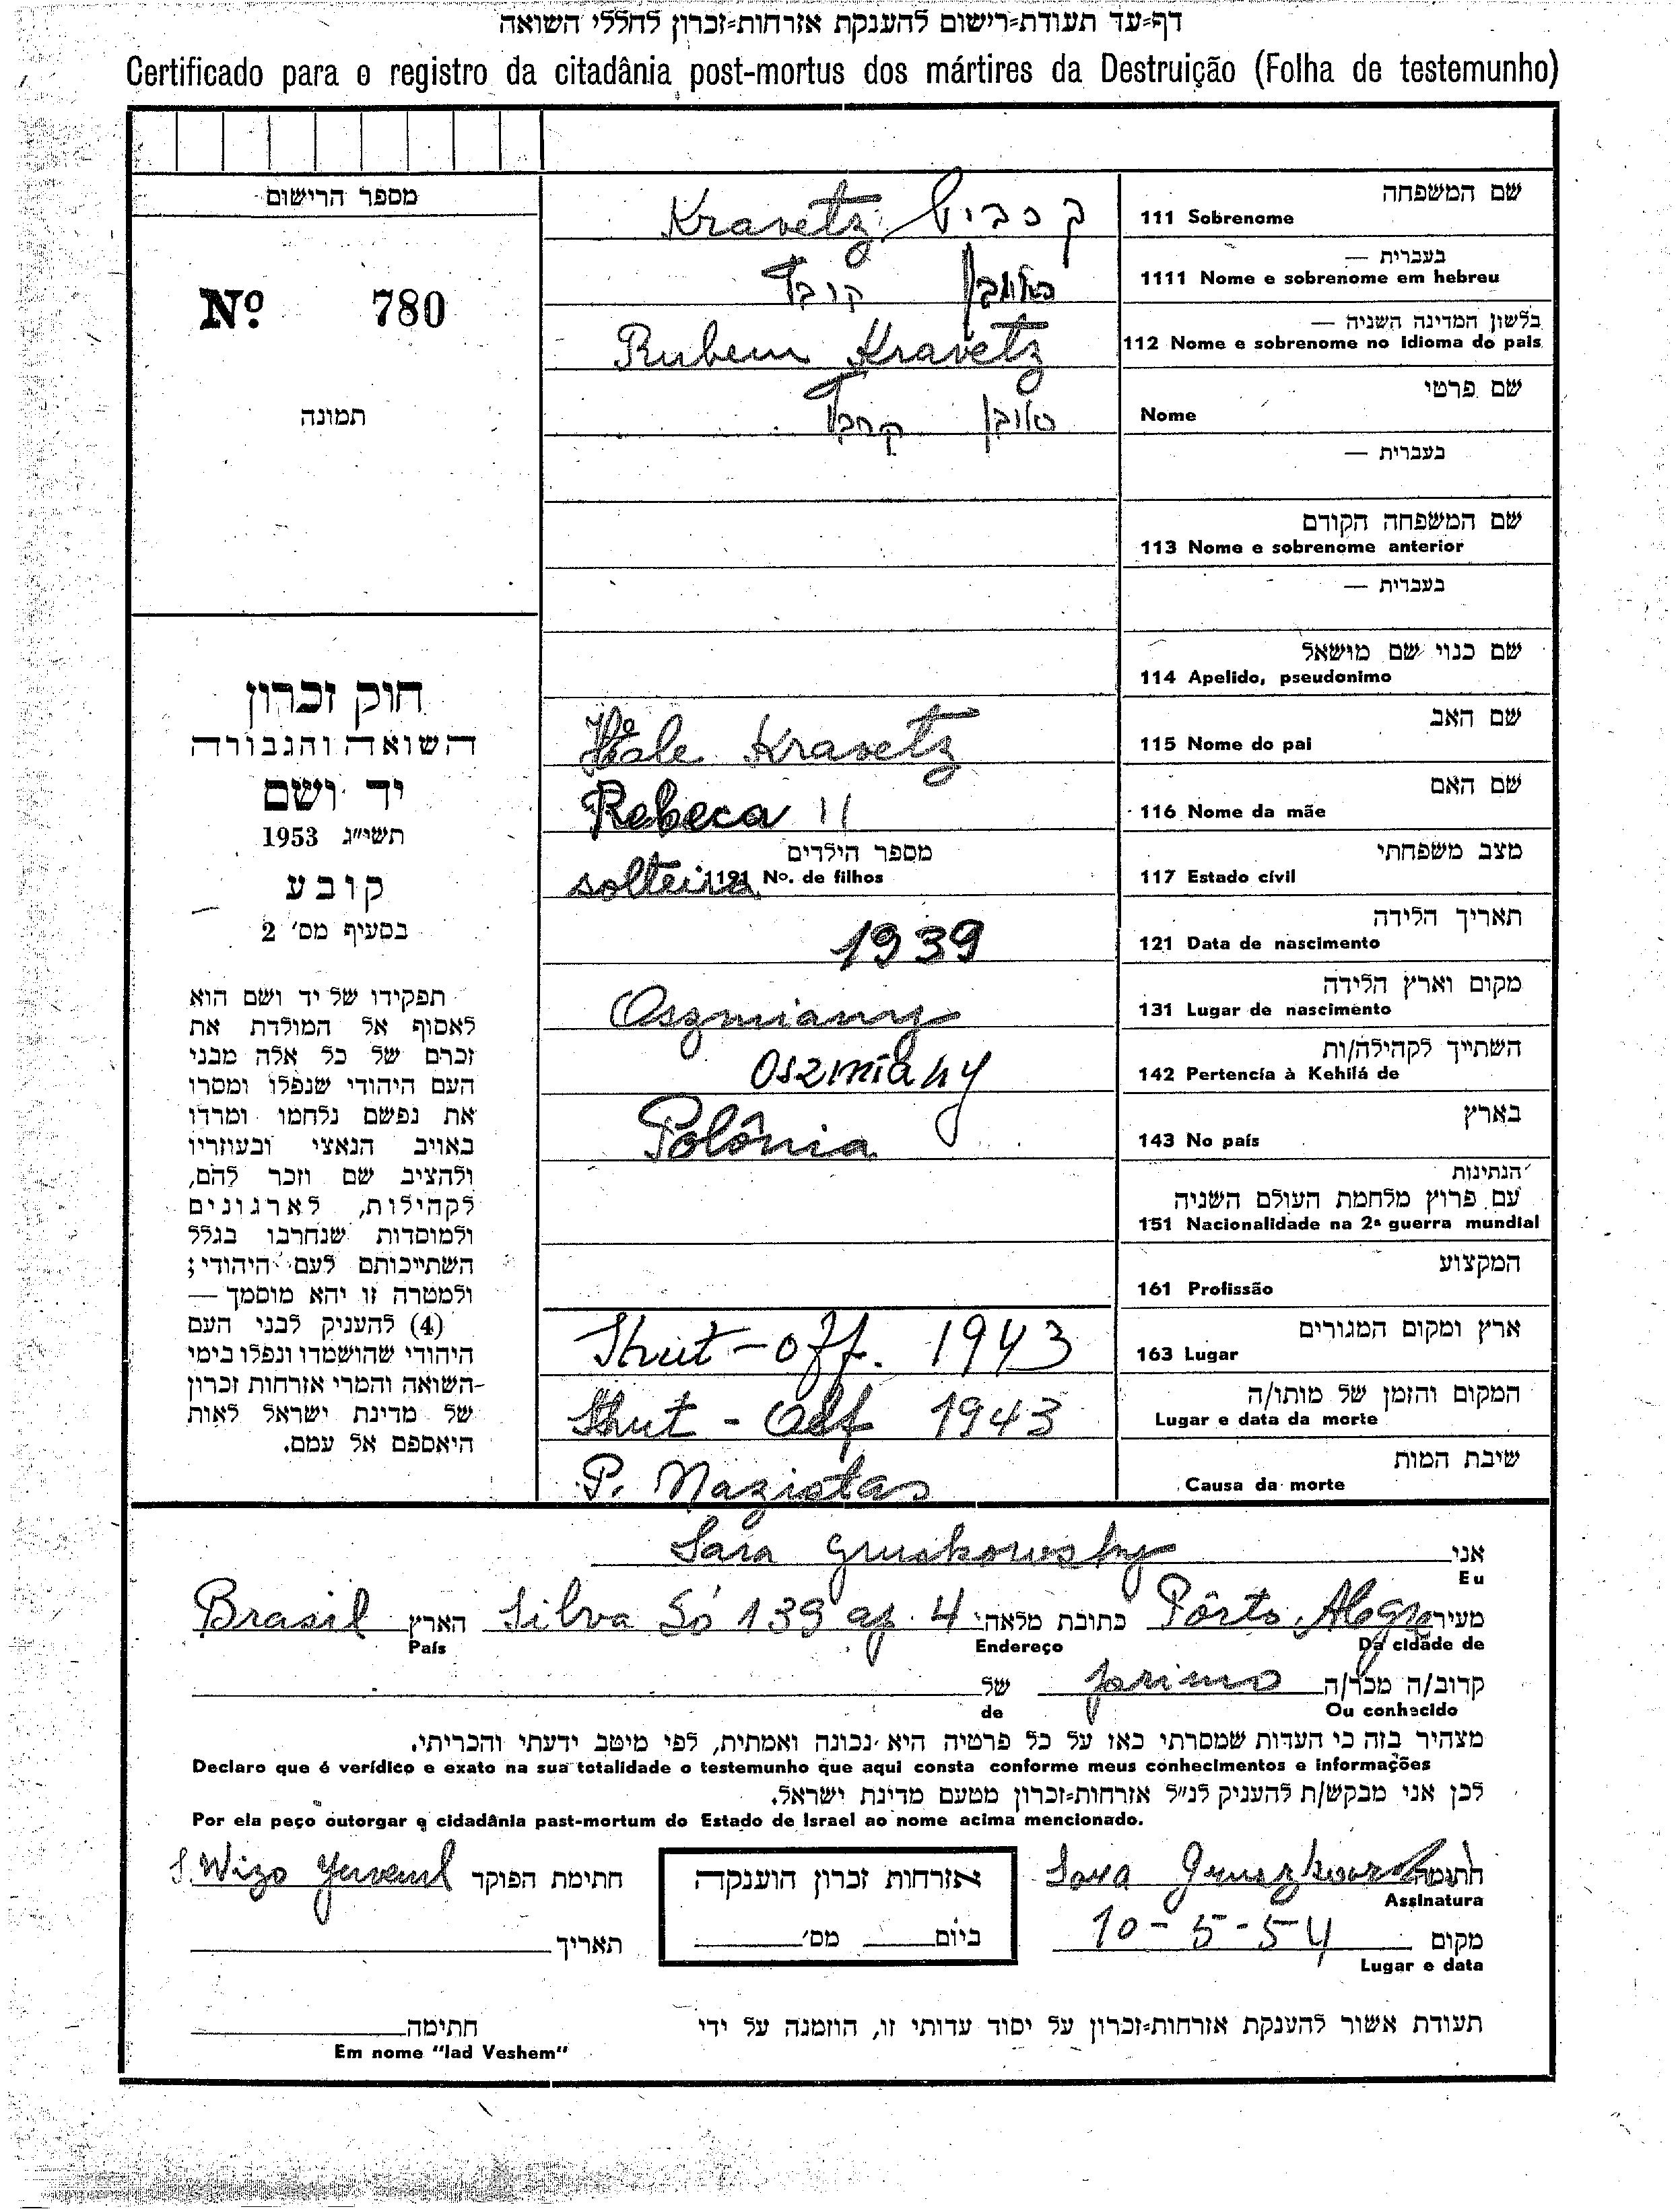 דף-עד תעודת-רישום להענקת אזרחות-זכרון לחללי השואה
Certificado para o registro da citadânia post-mortus dos mártires da Destruição (Folha de testemunho)
מספר הרישום
Nº 780
תמונה
חוק זכרון
השואה והגבורה
יד ושם
תשי"ג 1953
קובע
בסעיף מס' 2
תפקידו של יד ושם הוא
לאסוף אל המולדת את
זכרם של כל אלה מבני
העם היהודי שנפלו ומסרו
את נפשם נלחמו ומרדו
באויב הנאצי ובעוזריו
ולהציב שם וזכר להם,
לקהילות, לארגונים
ולמוסדות שנחרבו בגלל
השתייכותם לעם היהודי;
ולמטרה זו יהא מוסמך —
(4) להעניק לבני העם
היהודי שהושמדו ונפלו בימי
השואה והמרי אזרחות זכרון
של מדינת ישראל לאות
היאספם אל עמם.
שם המשפחה
111 Sobrenome Kravetz
בעברית —
1111 Nome e sobrenome em hebreu
בלשון המדינה השניה —
112 Nome e sobrenome no idioma do pais Rubem Kravetz
שם פרטי
Nome
בעברית —
שם המשפחה הקודם
113 Nome e sobrenome anterior
בעברית —
שם כנוי שם מושאל
114 Apelido, pseudonimo
שם האב
115 Nome do pai Kravetz
שם האם
116 Nome da mãe Rebeca "
מצב משפחתי
117 Estado cívil solteira
מספר הילדים
1191 Nº. de filhos
תאריך הלידה
121 Data de nascimento 1939
מקום וארץ הלידה
131 Lugar de nascimento Oszmiany
השתייך לקהילה/ות
142 Pertencía à Kehilá de Oszmiany
בארץ
143 No país Polônia
הנתינות
עם פרוץ מלחמת העולם השניה
151 Nacionalidade na 2ª guerra mundial
המקצוע
161 Profissão
ארץ ומקום המגורים
163 Lugar Shut-off. 1943
המקום והזמן של מותו/ה
Lugar e data da morte 1943
שיבת המות
Causa da morte P. Nazistas
אני Sara Gruskowsky
Eu
מעיר Pôrto Alegre כתובת מלאה: Silva Só 139 ap. 4 הארץ Brasil
Da cidade de Endereço País
קרוב/ה מכר/ה primo של
Ou conhecido de
מצהיר בזה כי העדות שמסרתי כאן על כל פרטיה היא נכונה ואמתית, לפי מיטב ידעתי והכריתי.
Declaro que é verídico e exato na sua totalidade o testemunho que aqui consta conforme meus conhecimentos e informações
לכן אני מבקש/ת להעניק לנ"ל אזרחות-זכרון מטעם מדינת ישראל.
Por ela peço outorgar a cidadânia past-mortum do Estado de Israel ao nome acima mencionado.
חתימה Sara Gruszkowski
Assinatura
אזרחות זכרון הוענקה
ביום מס'
חתימת הפוקד S. Wizo Juvenil
מקום 10-5-54
Lugar e data
תאריך
תעודת אשור להענקת אזרחות-זכרון על יסוד עדותי זו, הוזמנה על ידי
חתימה
Em nome "Iad Veshem"